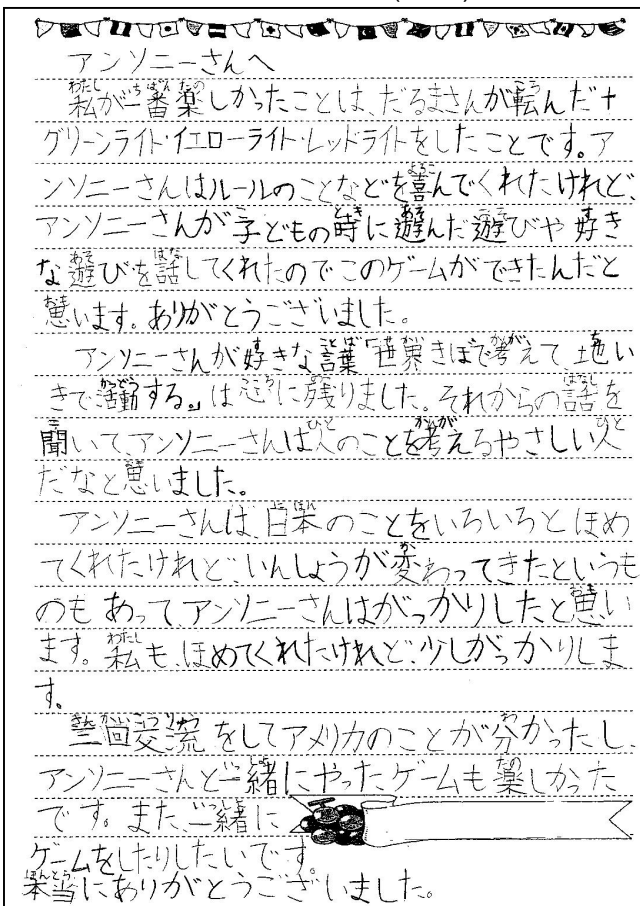 アンソニーさんへ
私が一番楽しかったことは、だるまさんが転んだ+
グリーンライト・イエローライト・レッドライトをしたことです。ア
ンソニーさんはルールのことなどを喜んでくれたけれど、
アンソニーさんが子どもの時に遊んだ遊びや好き
な遊びを話してくれたのでこのゲームができたんだと
思います。ありがとうございました。
アンソニーさんが好きな言葉「世界きぼで考えて地い
きで活動する。」は心に残りました。それからの話を
聞いてアンソニーさんは人のことを考えるやさしい人
だなと思いました。
アンソニーさんは、日本のことをいろいろとほめ
てくれたけれど、いんしょうが変わってきたというも
のもあって、アンソニーさんはがっかりしたと思い
ます。私も、ほめてくれたけれど、少しがっかりしま
す。
三回交流をしてアメリカのことが分かったし、
アンソニーさんと一緒にやったゲームも楽しかった
です。また、一緒に
ゲームをしたりしたいです。
本当にありがとうございました。